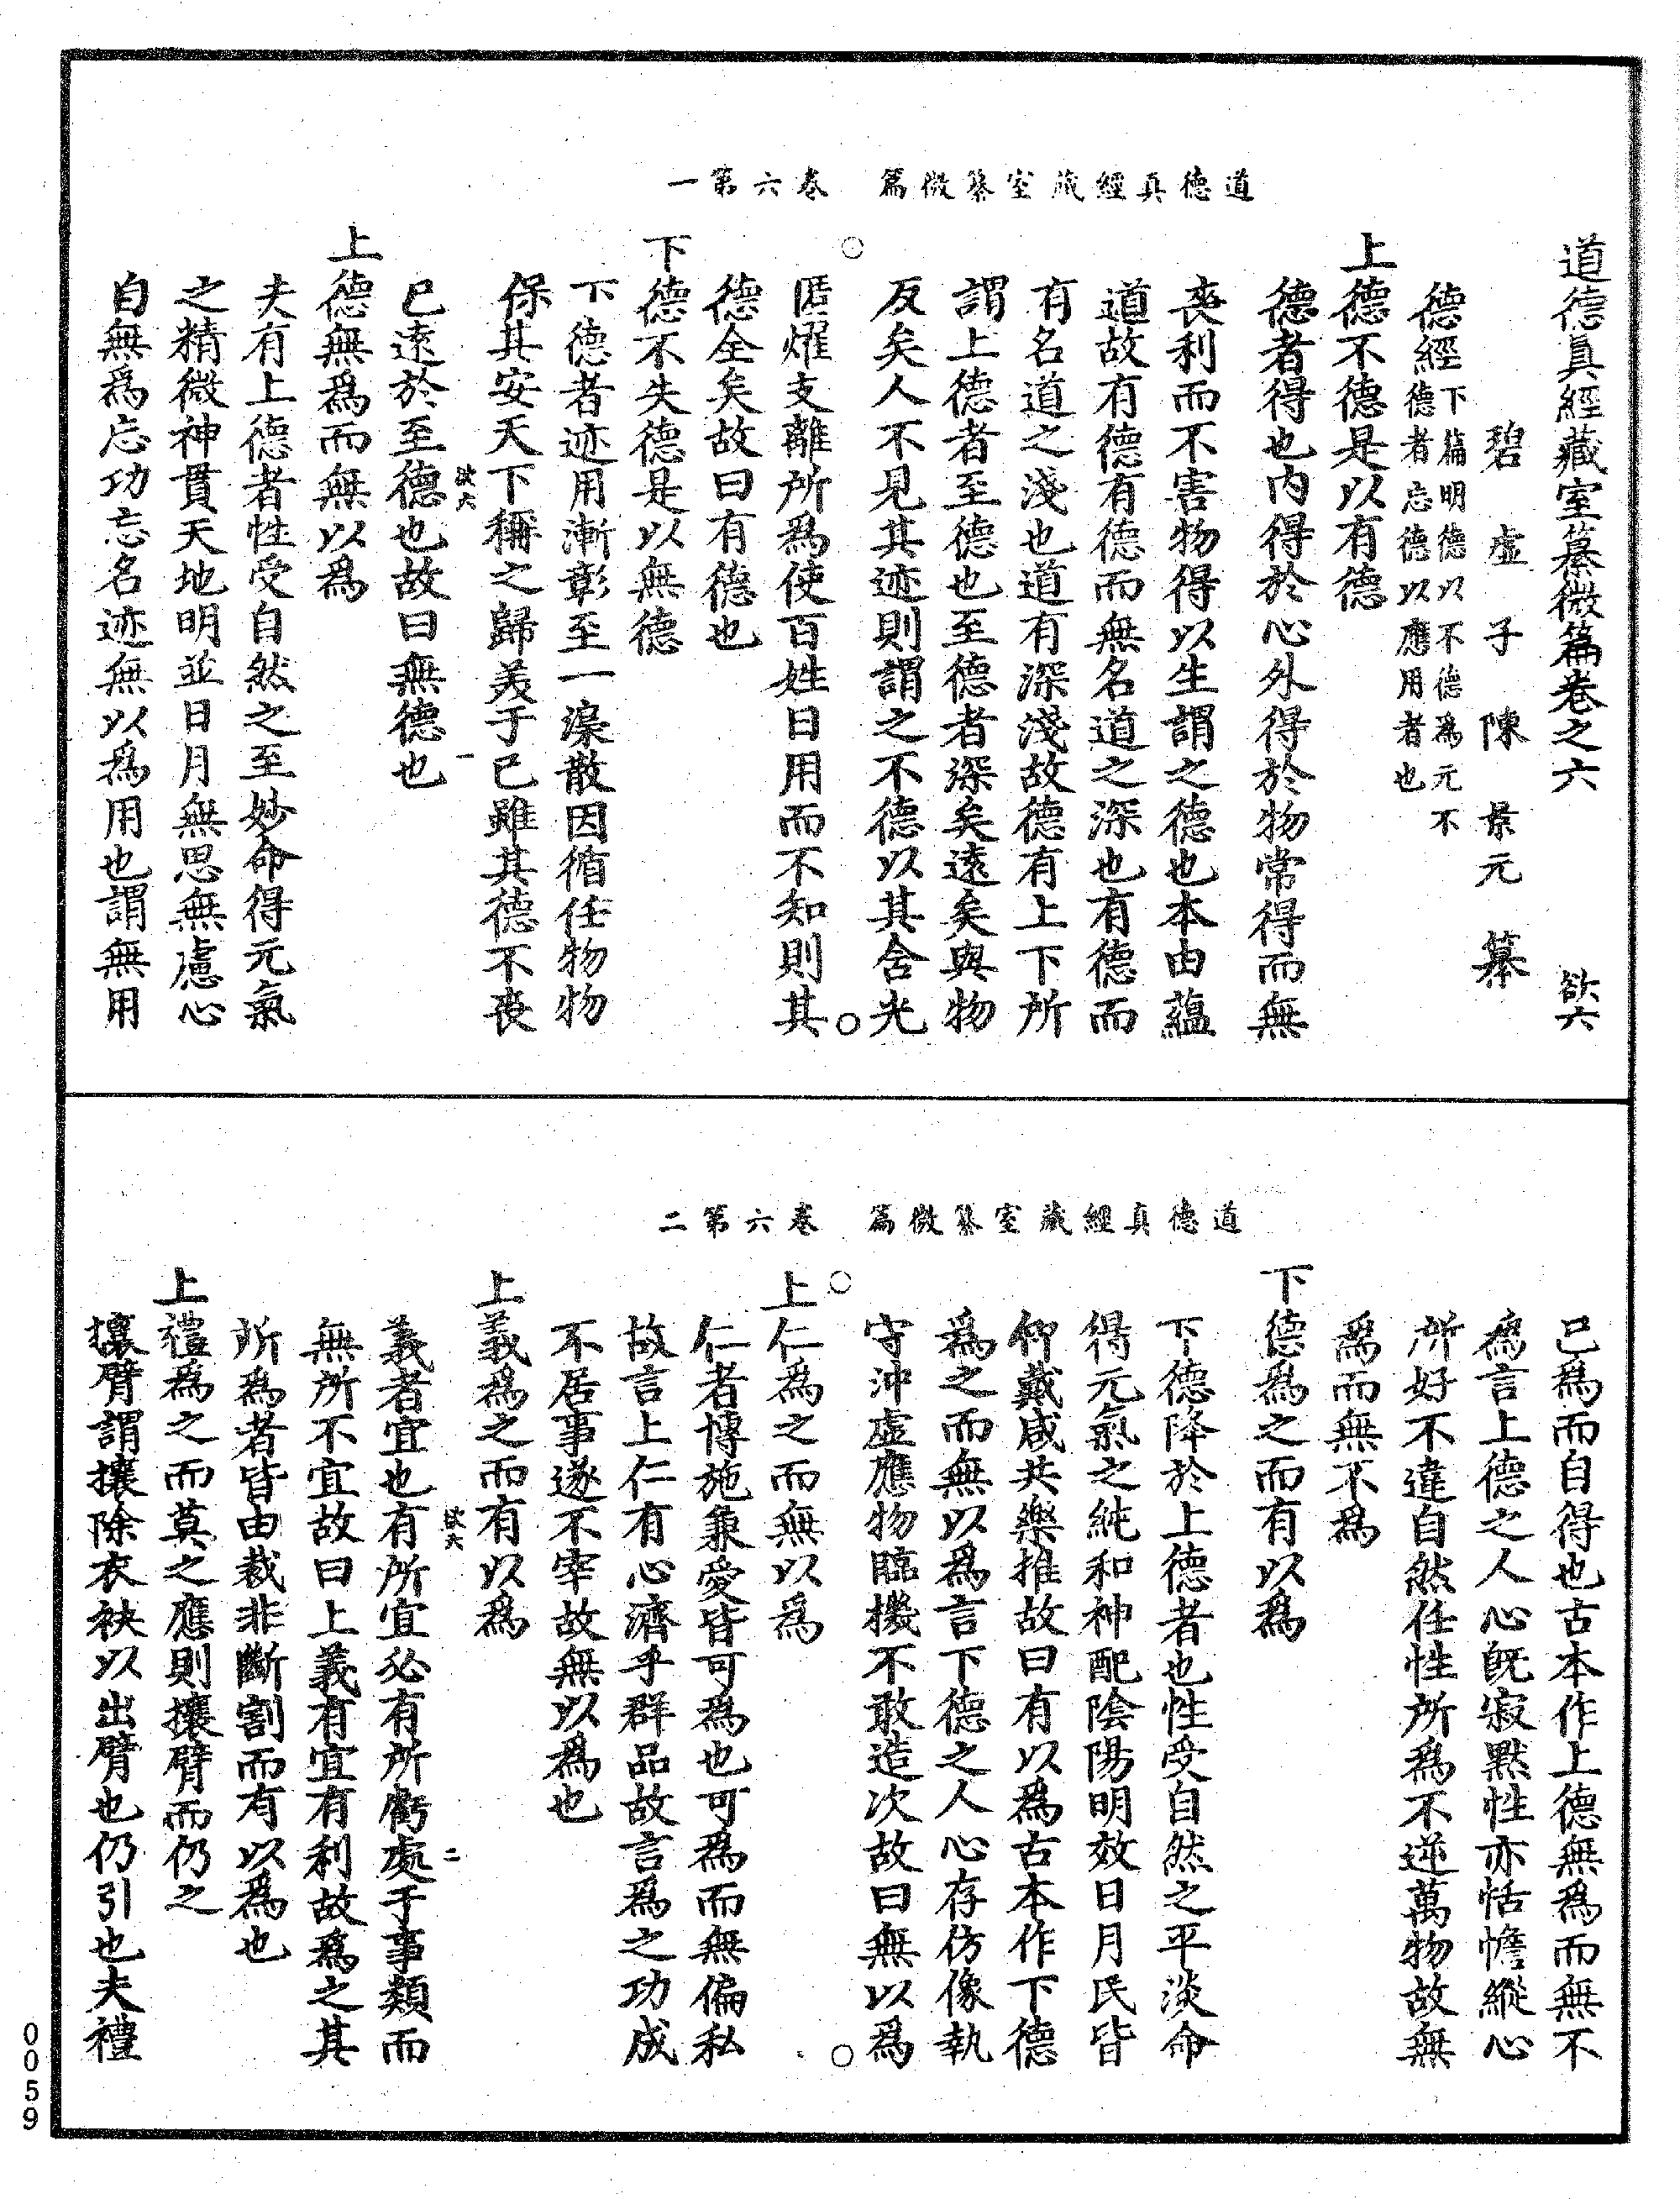 道德真經藏室纂微篇　卷六第一
道德真經藏室纂微篇卷之六　欲六
碧虛子陳景元纂
德經下篇明德以不德爲元不
德者忘德以應用者也
上德不德是以有德
德者得也內得於心外得於物常得而無
喪利而不害物得以生謂之德也本由蘊
道故有德有德而無名道之深也有德而
有名道之淺也道有深淺故德有上下所
謂上德者至德也至德者深矣遠矣與物
反矣人不見其迹則謂之不德以其含光
匿燿支離所爲使百姓日用而不知則其
德全矣故曰有德也
下德不失德是以無德
下德者迹用漸彰至一澡散因循任物物
保其安天下稱之歸美于已雖其德不喪
已遠於至德也故曰無德也
欲六　一
上德無爲而無以爲
夫有上德者性受自然之至妙命得元氣
之精微神貫天地明並日月無思無慮心
自無爲忘功忘名迹無以爲用也謂無用
道德真經藏室纂微篇　卷六第二
已爲而自得也古本作上德無爲而無不
爲言上德之人心旣寂默性亦恬憺縱心
所好不違自然任性所爲不逆萬物故無
爲而無不爲
下德爲之而有以爲
下德降於上德者也性受自然之平淡命
得元氣之純和神配陰陽明效日月民皆
仰戴咸共樂推故曰有以爲古本作下德
爲之而無以爲言下德之人心存仿像執
守沖虛應物臨機不敢造次故曰無以爲
上仁爲之而無以爲
仁者博施兼愛皆可爲也可爲而無偏私
故言上仁有心濟乎群品故言爲之功成
不居事遂不宰故無以爲也
上義爲之而有以爲
欲六　二
義者宜也有所宜必有所虧處于事類而
無所不宜故曰上義有宜有利故爲之其
所爲者皆由裁非斷割而有以爲也
上禮爲之而莫之應則攘臂而仍之
攘臂謂攘除衣袂以出臂也仍引也夫禮
0059